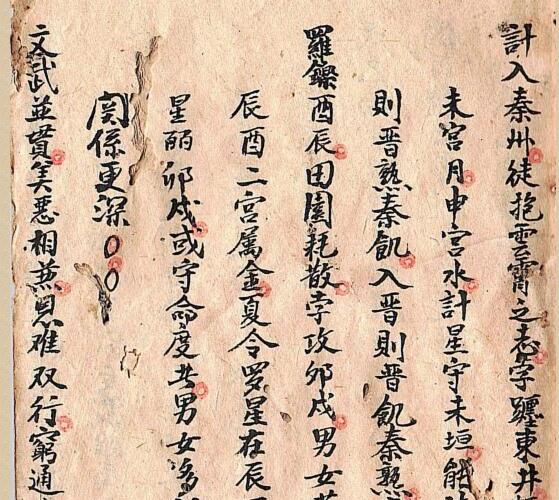 計入秦州徒抱雲霄之志孛躔東井
未宮月申宮水計星守未垣能
則晋熟秦飢入晋則晋飢秦熟
羅躔酉辰田園耗散孛攻卯戌男女
辰酉二宮属金夏令罗星在辰
星酉卯戌或守命度共男女
関係更深
文武並貫美悪相兼恩难双行窮通